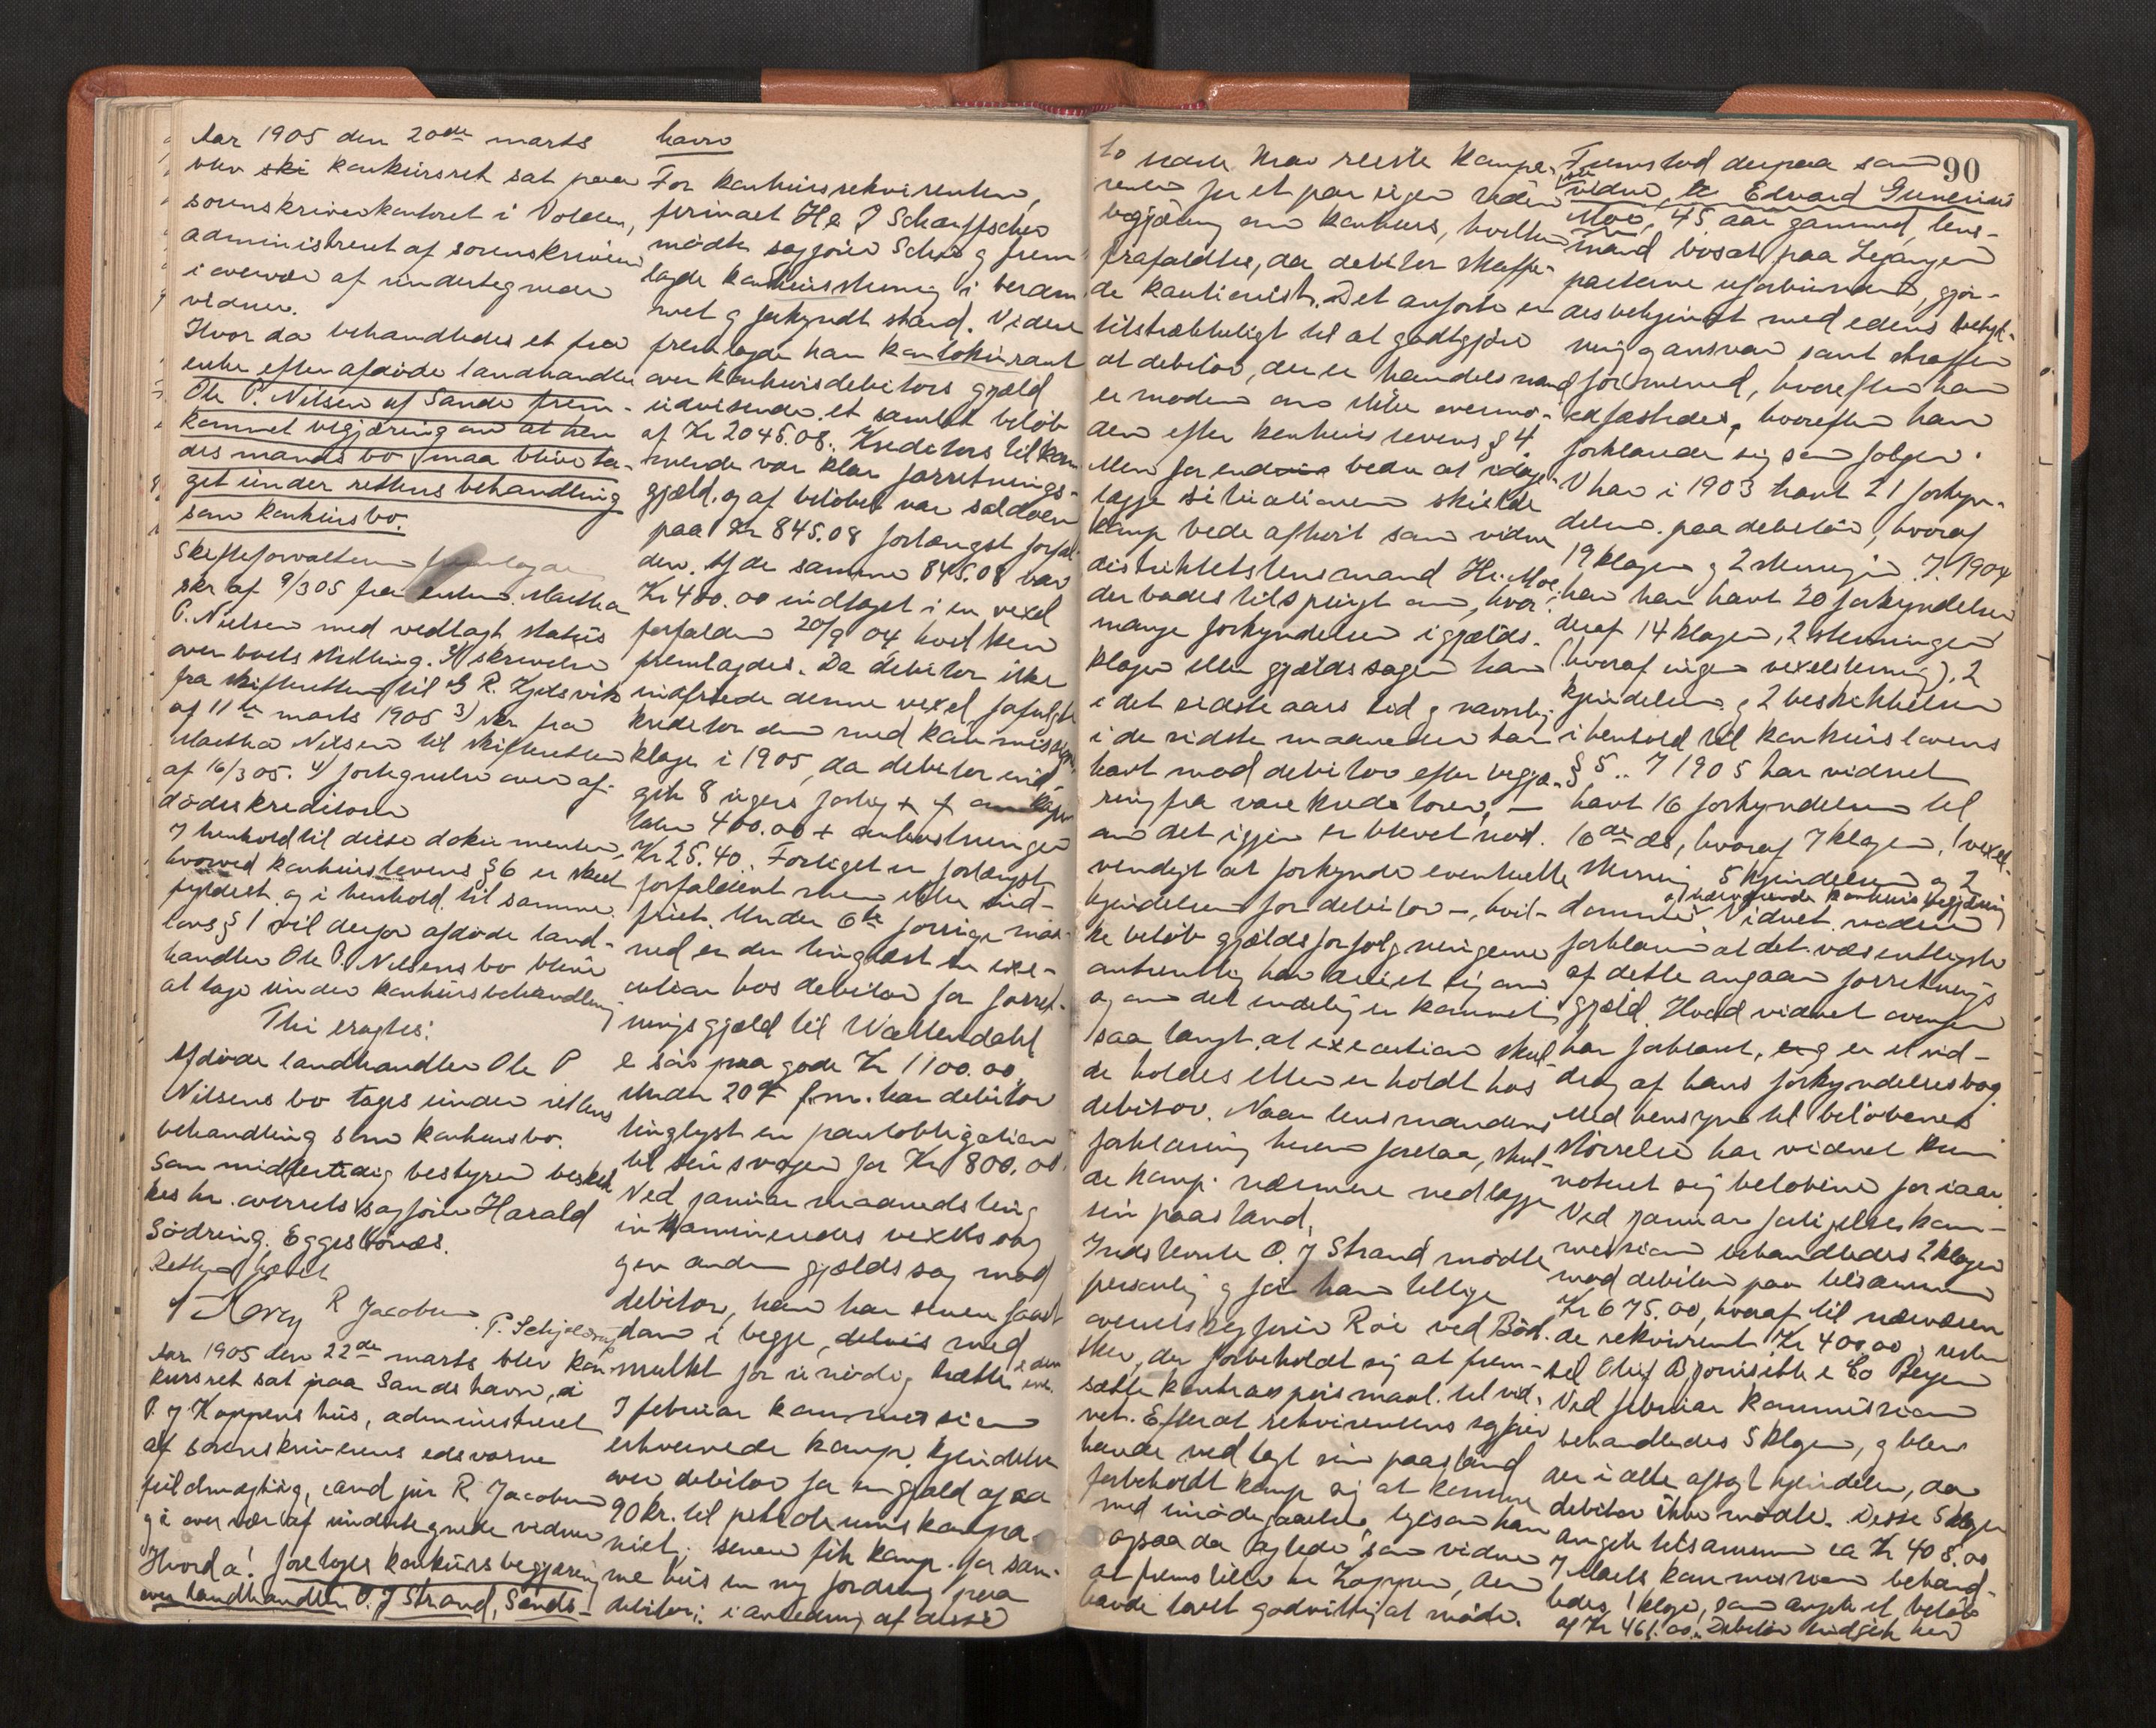 Aar 1905 den 20de marts
blev ski konkursret sat paa
sorenskriverkontoret i Volden,
administreret af sorenskriveren
i overvær af undertegnede
vidner.
Hvor da behandledes et fra
enke efter afdøde landhandler
Ole P. Nilsen af Sande frem-
kommet begjæring om at hen
des mands bo maa blive ta-
get under rettens behandling
som konkursbo.
Skifteforvalteren fremlagde
skr af 9/3 05 fra enken Martha
P. Nielsen med vedlagt status
over boets stilling. 2) skrivelse
fra skifteretten til G R. Kjelsvik
af 11te marts 1905 3) skr fra
Martha Nilsen til skifteretten
af 16/3 05. 4) fortegnelse over af-
dødes kreditorer
I henhold til disse dokumenter,
hvorved konkurslovens § 6 er skeet
fyldest og i henhold til samme
lovs § 1 vil derfor afdøde land-
handler Ole P. Nilsens bo blive
at tage under konkursbehandling
Thi eragtes:
Afdøde landhandler Ole P
Nilsens bo tages under rettens
behandling som konkursbo.
Som midlertidig bestyrer beskik
kes hr. overretssagfører Harald
Södring, Eggesbönæs.
Retten hævet
R Jacobsen P. Schjelderup
Aar 1905 den 22de marts blev kon
kursret sat paa Sandshavn, i
P. J Koppens hus, administreret
af sorenskriverens edsvorne
fuldmægtig, cand jur R. Jacobsen
g i overvær af undertegnede vidner
Hvorda! foretoges konkursbegjæring
over landhandler O. J Strand, Sands-
havn
For konkursrekvirenten,
firmaet H & J Schauffscher
mødte sagfører g frem-
lagde konkursstevning i beram
met g forkyndt stand. Videre
fremlagde han kontokurant
over konkursdebitors gjæld
udvisende et samlet beløb
af Kr 2045.08. Kreditors tilkom
mende var klar forretnings-
gjæld og af beløbet var saldoen
paa Kr 845.08 forlængst forfal-
den. Af de samme 845.08 var
Kr 400.00 indtaget i en vexel
forfalden 20/9 04 hvilken
fremlagdes. Da debitor ikke
indfriede denne vexel, forfulgte
kreditor den med kommissions-
klage i 1905, da debitor ind
gik 8 ugers forlig
400.00 + omkostninger
Kr 25.40. Forliget er forlængst
forfaldent men ikke ind-
friet. Under 6te forrige maa-
ned er der tinglæst en exe-
cution hos debitor for forret-
ningsgjæld til Wallendahl
& søn paa gode Kr 1100.00.
Under 20de f. m. har debitor
tinglyst en pantobligation
til sin svoger for Kr 800.00
Ved januar maanedsting
inkamineredes vexelsag
g en anden gjældssag mod
debitor, han har senere faaet
dom i begge, delvis med
mulkt for unødig trætte i den ene.
I februar kommission
erhvervede komp. kjendelse
over debitor for en gjæld ogsaa
90 kr. til petroleumskompa-
niet. Senere fik komp. for sam-
me hus en ny fordring paa
debitor; i anledning af disse
90
to reiste kompa-
renten for et par uger siden
begjæring om konkurs, hvilken
frafaldtes, da debitor skaffe-
de kautionist. Det anførte er
tilstrækkeligt til at godtgjøre
at debitor, der er handelsmand
er moden om ikke overmo-
den efter konkurslovens § 4
Men for endvis bedre at idag-
lægge situationen skulde
komp bede afhørt som vidne
distriktets lensmand Hr. Moe,
der bades tilspurgt om, hvor
mange forkyndelser i gjælds-
klager eller gjældssager han
i det sidste aars tid g navnlig
i de sidste maaneder har
havt mod debitor efter begjæ-
ring fra varekreditorer, -
om det igjen er blevet nød-
vendigt at forkynde eventuelle
kjendelser for debitor -, hvil-
ke beløb gjældsforfølgningerne
omtrentlig har dreiet sig om
og om det endelig er kommet
saa langt, at execution skul-
de holdes eller er holdt hos
debitor. Naar lensmandens
forklaring herom forelaa, skul-
de komp. nærmere nedlægge
sin paastand.
Indstevnte O. J Strand mødte
personlig g for ham tillige
overretssagfører Roe ved Böd-
tker, der forbeholdt sig at frem-
sætte kontraspørsmaal til vid-
net. Efterat rekvirentens sagfører
havde nedlagt sin paastand
forbeholdt komp sig at komme
med imødegaaelse, ligesom han
ogsaa da agtede som vidne
at fremstille hr Koppen, den
havde lovet godvillig at møde.
Fremstod derpaa som
1ste vidne, Edvard Gunerius
Moe, 45 aar gammel, lens-
mand bosat paa Lejanger
parterne uforbunden, gjor-
des bekjendt med edens betyd-
ning g ansvar samt straffen
for mened, hvorefter han
edfæstedes, hvorefter han
forklarede sig som følger:
V har i 1903 havt 21 forkyn-
delser paa debitor, hvoraf
19 klager g 2 stevninger. I 1904
har han havt 20 forkyndelser
deraf 14 klager, 2 stevninger
(hvoraf ingen vexelstevning), 2
kjendelser g 2 beskikkelser
i henhold til konkurslovens
§ 5. I 1905 har vidnet
havt 16 forkyndelser til
16de ds, hvoraf 7 klager, 1 vexel-
stevning 5 kjendelser og 2
domme g nærværende konkursbegjæring
Vidnet videre
forklarer at det væsentligste
af dette angaar forretnings
gjæld. Hvad vidnet ovenfor
har forklaret, er et ud-
drag af hans forkyndelsesbog
Med hensyn til beløbenes
størrelse har vidnet kun
noteret sig beløbene for iaar
Ved januar forligelseskom-
mission behandledes 2 klager
mod debitor paa tilsammen
Kr 675.00, hvoraf til nærværen
de rekvirent Kr 400.00, resten
til Oluf Bjørnsithe & Co Bergen
Ved februar kommission
behandledes 5 klager, g blev
der i alle afsagt kjendelse, da
debitor ikke mødte. Disse 5 klager
angik tilsammen ca Kr 408.00
I Marts kommission behand-
ledes 1 klage, som angik et beløb
af Kr 461.00. Debitor indgik her